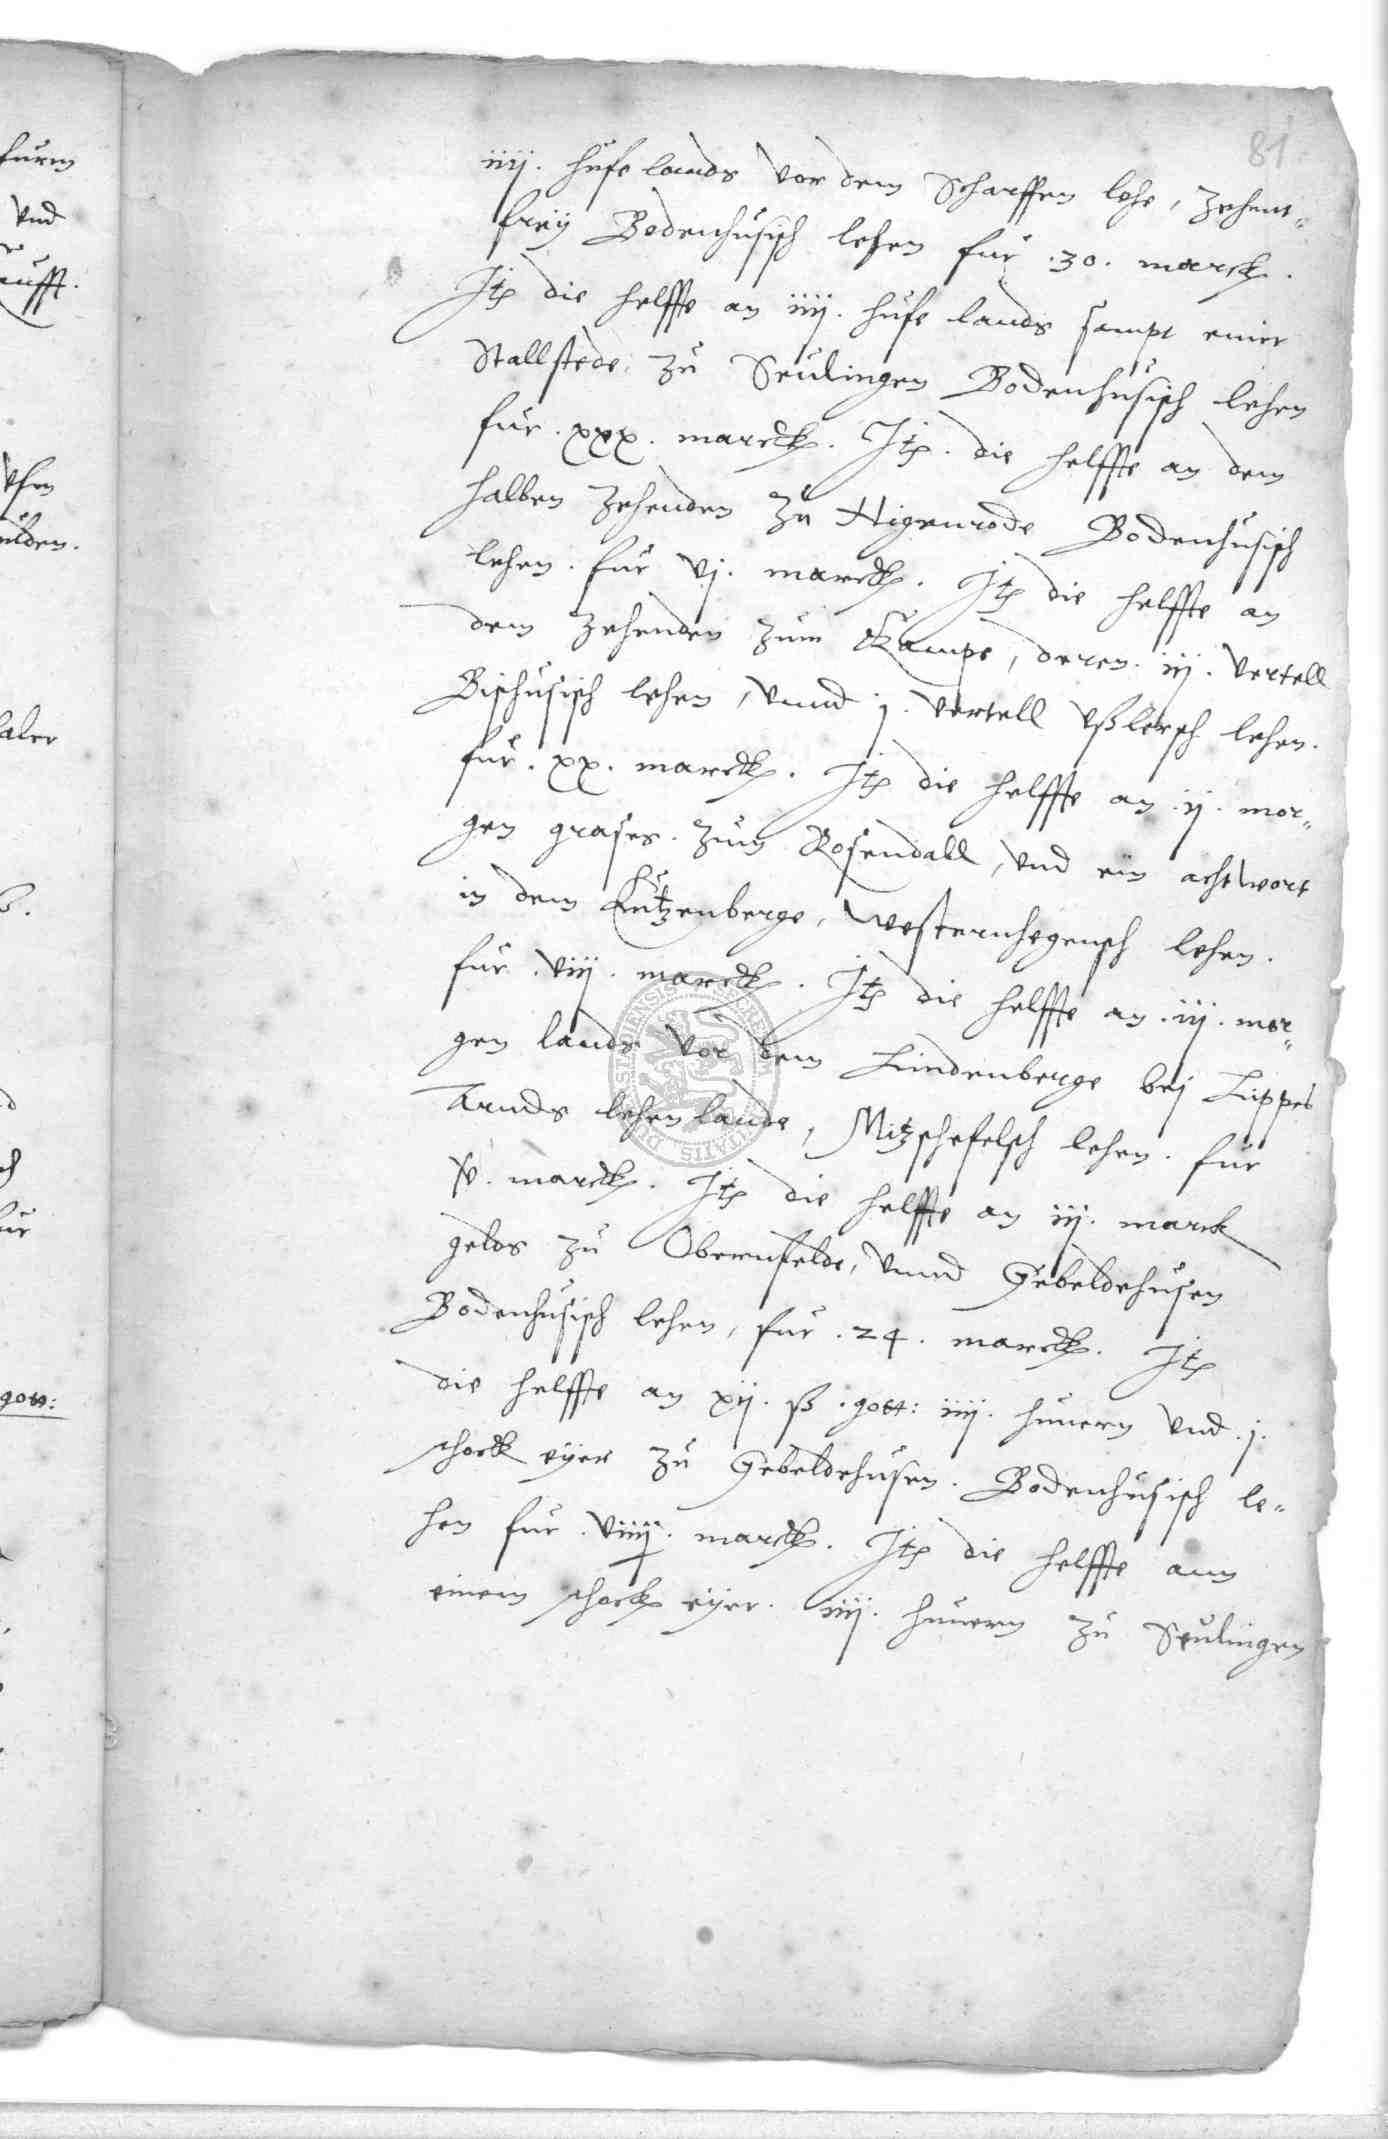 81
iiij. hufe lands vor dem Scharffen lohe, zehent-
freÿ Bodenhusisch lehen fur .30. marck.
Jtem die helffte an iiij. hufe lands sampt einer
Stallstede zu Seulingen Bodenhusisch lehen
fur. xxx. marck. Jtem. die helffte an dem
halben zehenden zu Higenrode Bodenhusisch
lehen. fur vj. marck. Jtem die helffte an
dem zehenden zum Kampe, deren. iij. vertell
Bischusisch lehen, vnnd j. vertell vßlersch lehen.
fur. xx. marck. Jtem die helffte an .ij. mor-
gen grases. zum Rosendall, vnd ein achtwort
in dem Lutzenberge, westernhegensch lehen.
fur. viij. marck. Jtem die helffte an .iij. mor-
gen lands vor dem Lindenberge beÿ Luppes
Arnds lehen lande, Mitzschefelsch lehen. fur
v. marck. Jtem die helffte an iij. marck
gelds zu Obernfelde, vnnd Gebeldehusen
Bodenhusisch lehen, fur .24. marck. Jtem
die helffte an xij. ß. gott: iiij. hunern vnd .j.
schock eÿer zu Gebeldehusen. Bodenhusisch le-
hen fur. viiij. marck. Jtem die helffte ann
einem schock eÿer. iiij. hunern zu Seulingen
furn
vnd
aufft.
ulden.
aler
gott: